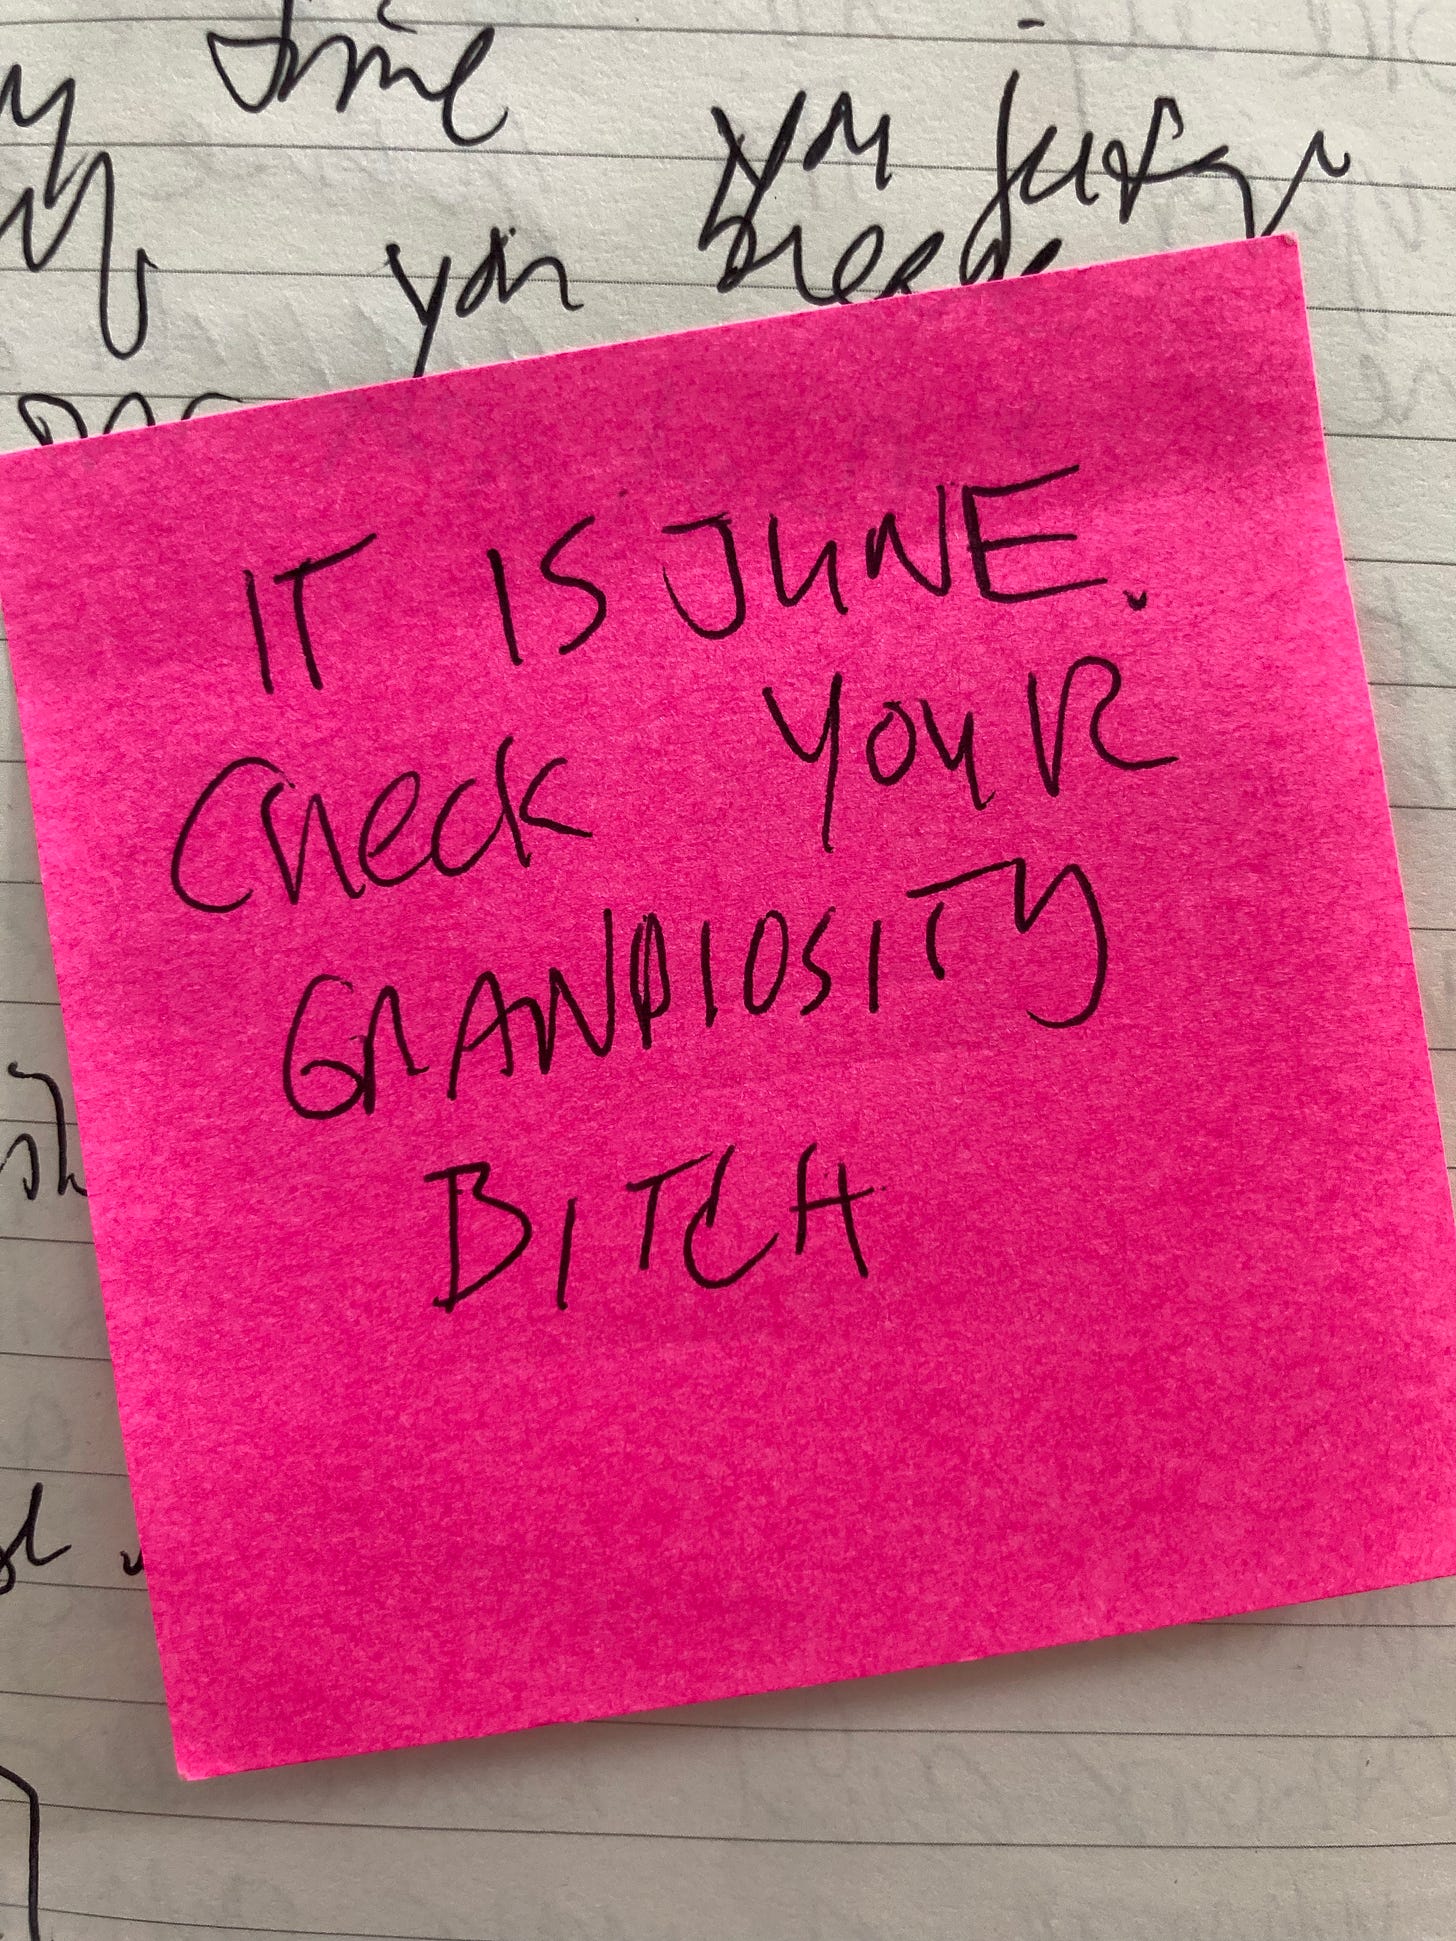 time
you
you
IT IS JUNE.
CHeck YOUR
GRANDIOSITY
BITCH